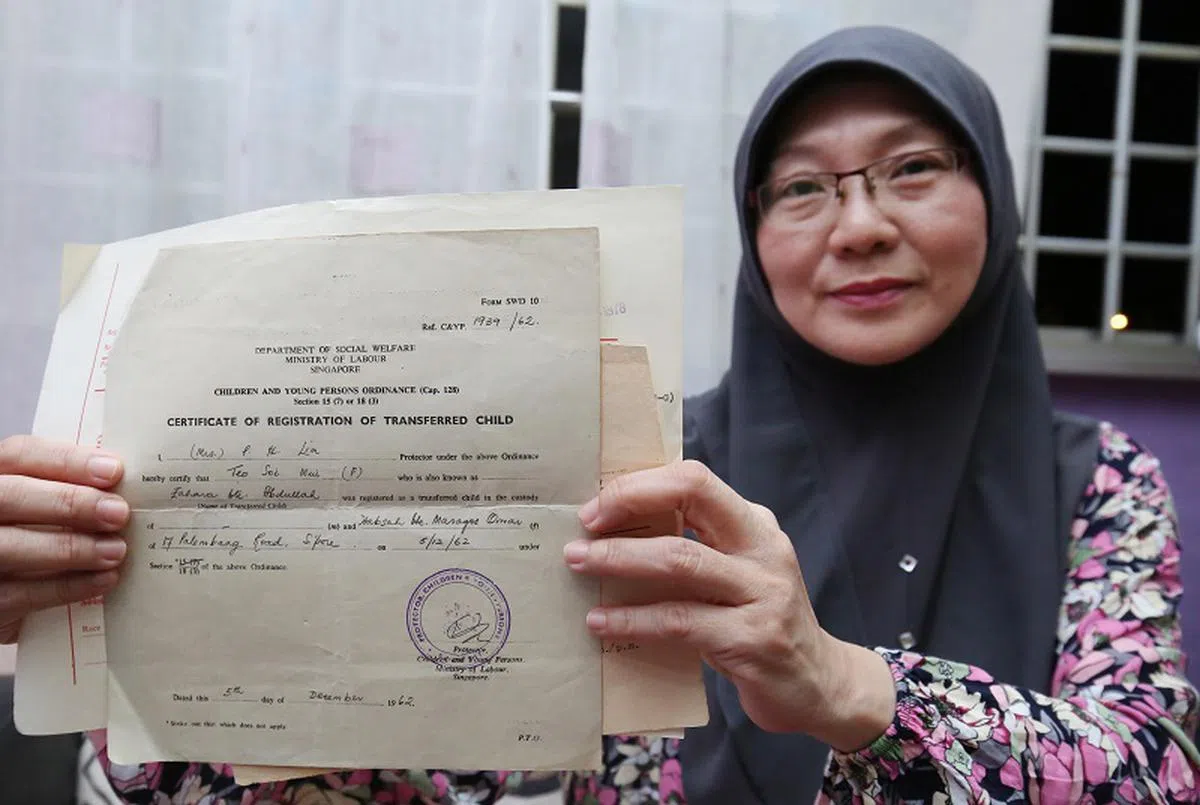 FORM SWD 10
Ref. C&YP. 1939/62.
DEPARTMENT OF SOCIAL WELFARE
MINISTRY OF LABOUR
SINGAPORE
CHILDREN AND YOUNG PERSONS ORDINANCE (Cap. 128)
Section 15 (7) or 18 (3)
CERTIFICATE OF REGISTRATION OF TRANSFERRED CHILD
I, (Mrs.) P. H. Lin Protector under the above Ordinance
hereby certify that Teo Soh Mui (F) who is also known as
Zahara bte. Abdullah was registered as a transferred child in the custody
(Name of Transferred Child)
of - (m) and Habsah bte. Omar (f)
of 17 Palembang Road, S'pore. on 5/12/62 under
Section 15 (7) 18 (3) of the above Ordinance.
PROTECTOR, CHILDREN &
Protector,
Children and Young Persons
Ministry of Labour,
Singapore.
Dated this 5th day of December 1962.
* Strike out that which does not apply
P.T.O.
Race